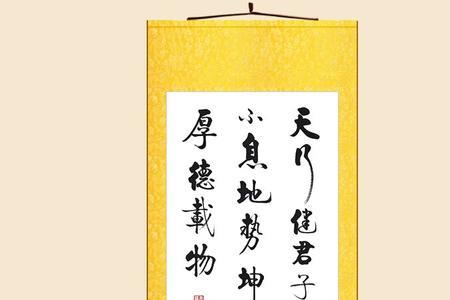 天行健君子
不息地勢坤
厚德載物